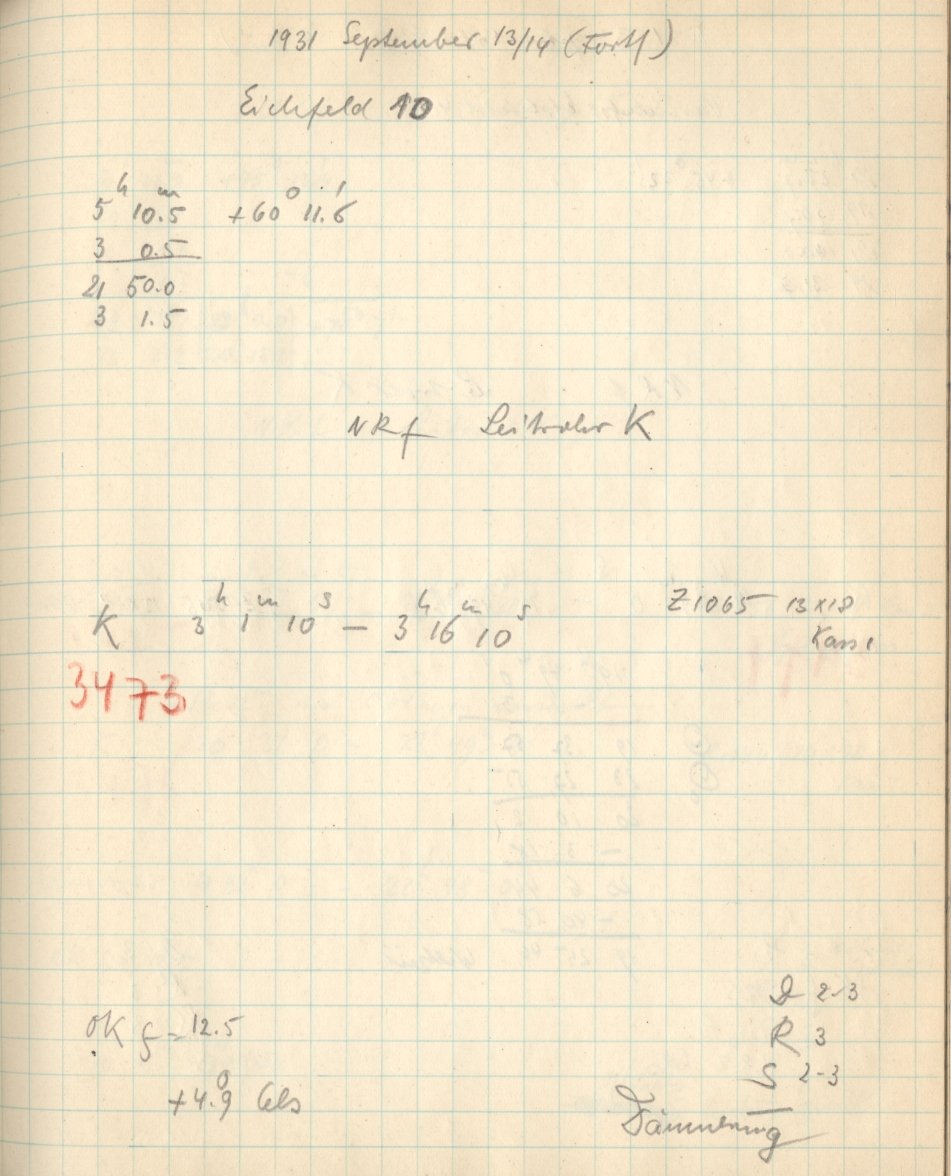 1931 September 13/14 (Fortf)
Eichfeld 10
5h 10.5m +60° 11.'6
3 0.5
21 50.0
3 1.5
NRf Leitrohr K
K 3h 1m 10s — 3h 16m 10s
Z1065 13x18
Kass 1
3473
D 2-3
R 3
S 2-3
OK f = 12.5
+4.°9 Cels
Dämmerung